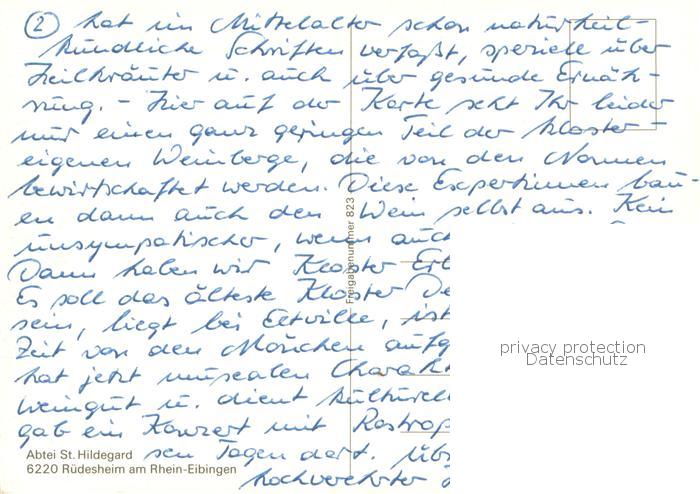 ② hat im Mittelalter schon naturheil-
kundliche Schriften verfaßt, speziell über
Heilkräuter u. auch über gesunde Ernäh-
rung. - Hier auf der Karte seht Ihr leider
nur einen ganz geringen Teil der kloster-
eigenen Weinberge, die von den Nonnen
bewirtschaftet werden. Diese Expertinnen bau-
en dann auch den Wein selbst aus. Kein
unsympatischer, wenn auch
Dann haben wir Kloster
Es soll das älteste Kloster
sein, liegt bei Eltville, ist
Zeit von den Mönchen
hat jetzt musealen
Weingut u. dient
gab ein Konzert mit
sen Tagen dort.
hochverehrter
Freigabenummer 823
Abtei St. Hildegard
6220 Rüdesheim am Rhein-Eibingen
privacy protection
Datenschutz